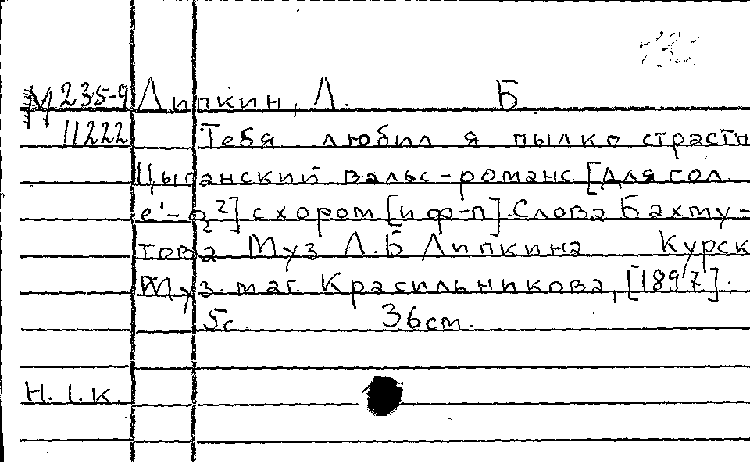 М 235-9 Липкин, Л. Б.
11222 Тебя любил я пылко страстн
Цыганский вальс-романс [для гол.
e¹-g²] с хором [и ф-п] Слова Бахму-
това Муз Л.Б Липкина Курск
Муз. маг. Красильникова, [1897].
5с. 36см.
Н.1.к.